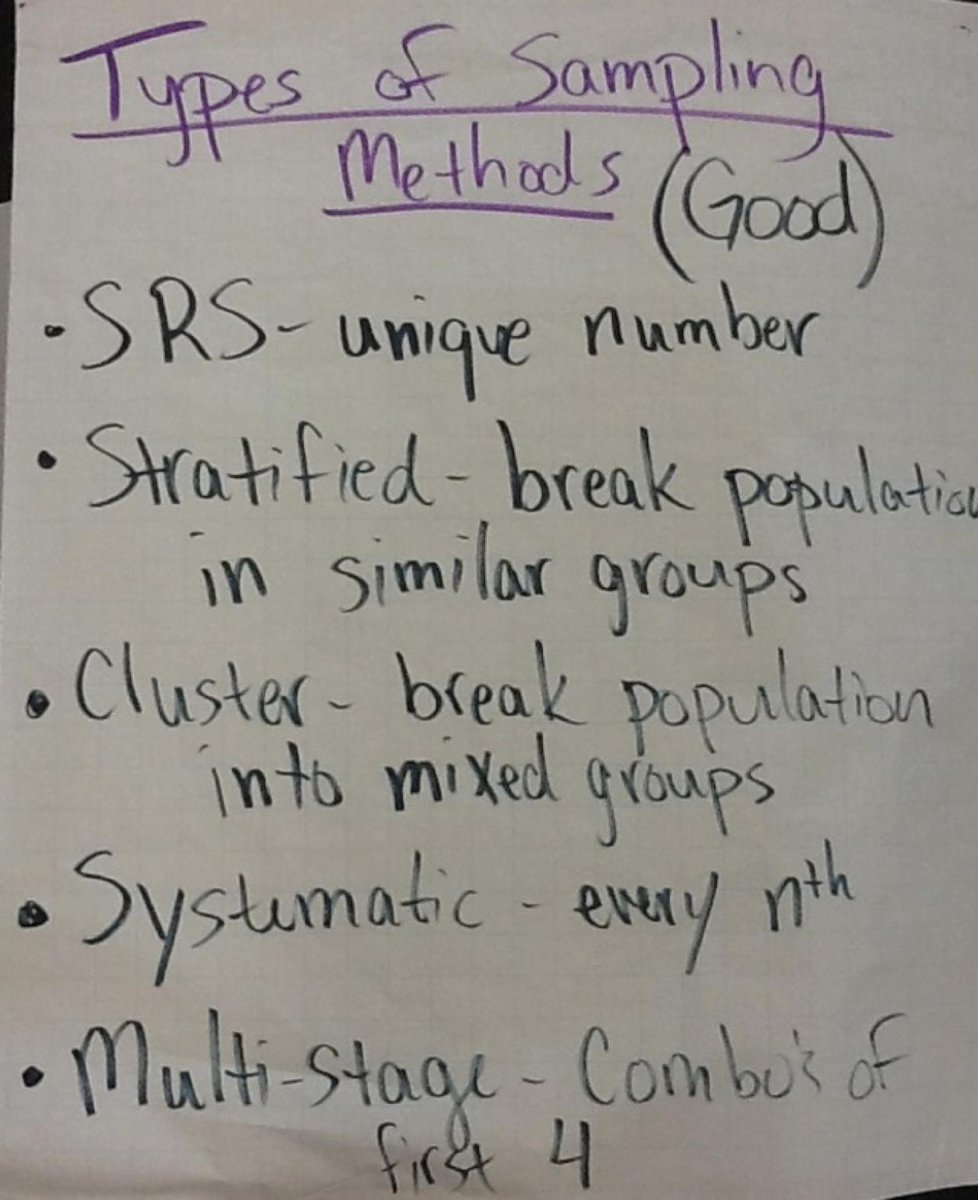 Types of Sampling
Methods (Good)
• SRS - unique number
• Stratified - break population
in similar groups
• Cluster - break population
into mixed groups
• Systematic - every nth
• Multi-stage - Combo's of
first 4